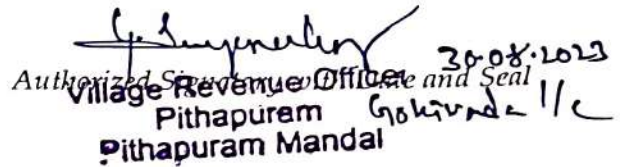 30.08.2023
Authorized Signatory with Name and Seal
Village Revenue Officer
Pithapuram I/c
Pithapuram Mandal